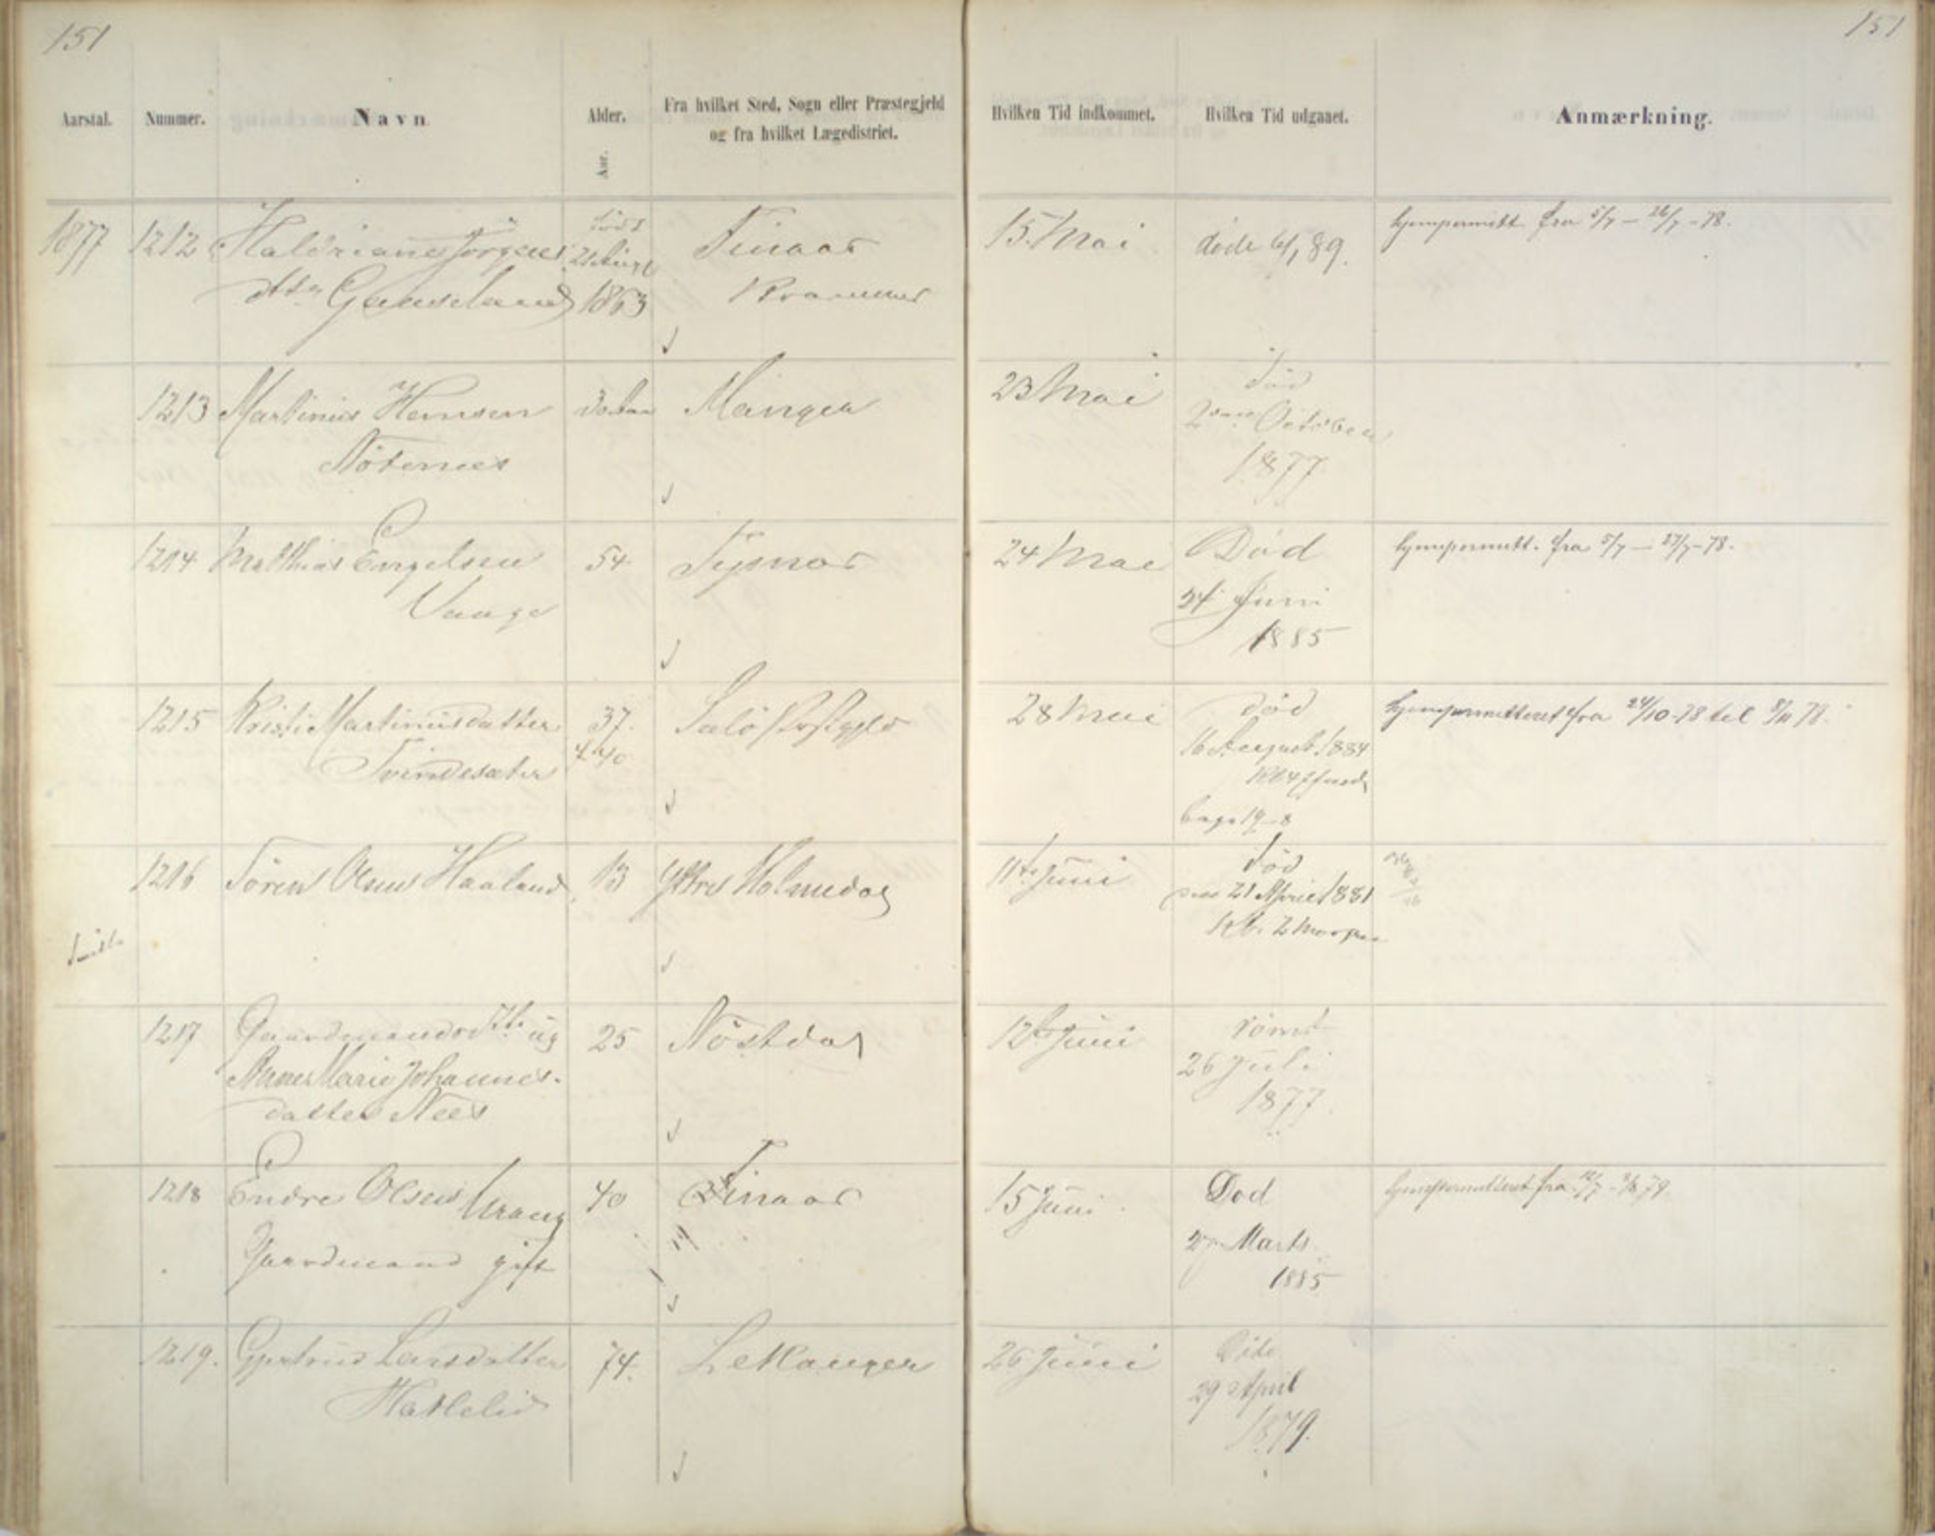 151
151
Aarstal.
Nummer.
Navn
Alder.
Aar.
Fra hvilket Sted, Sogn eller Præstegjeld
og fra hvilket Lægedistrict.
Hvilken Tid indkommet.
Hvilken Tid udgaaet.
Anmærkning.
1877 1212
født
1863
Finaas
15 Mai
døde 6/1 89.
hjempermitt. fra 5/7 - 26/7 - 78.
1213 Martinus Hansen
Manger
23 Mai
død
October
1877
1214 Matthias Engelsen
Vaage
54
Tysnæs
24 Mai
Død
24 Juni
1885
hjempermitt. fra 5/7 - 27/7 - 78.
1215 Kristi Martinusdatter
Tvindesæter
37.
28 Mai
død
16 August 1884
hjempermitteret fra 24/10-78 til 8/11 78.
1216 Sören Olsen Haaland
13
Yttre Holmedal
11te Juni
død
den 21 April 1881
Kl. 2 Morgen
1217
Anne Marie Johannes-
datter Nees
25
Nöstdal
12te Juni
rømt
26 Juli
1877
1218 Endre Olsen
Gaardmand gift
40
Finaas
15 Juni
Død
27 Marts
1885
hjempermitteret fra
1219. Gjertrud Larsdatter
Hatlelid
74.
Lekanger
26 Juni
Døde
29 April
1879.